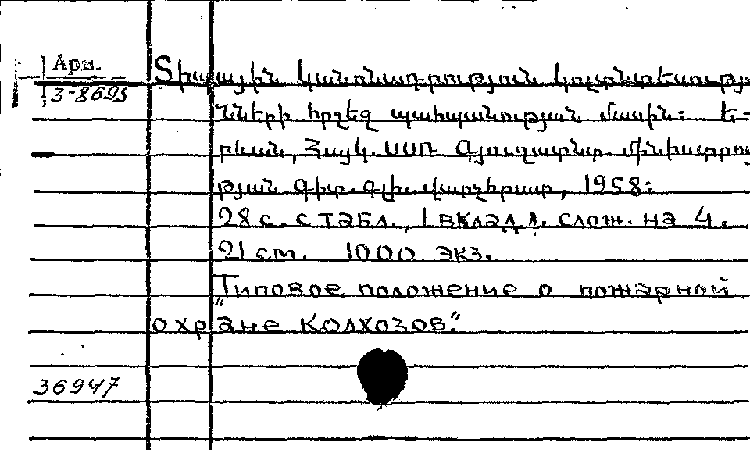 Арм.
3-8695
Տիպային կանոնադրություն կոլտնտեսությու
նների հրշեջ պահպանության մասին: Ե-
րևան, Հայկ. ՍՍՌ Գյուղատնտ. մինիստրու
թյան գիտ.
28 с. с табл., 1 вклад. л. слож. на 4.
21 см. 1000 экз.
"Типовое положение о пожарной
охране колхозов."
36947